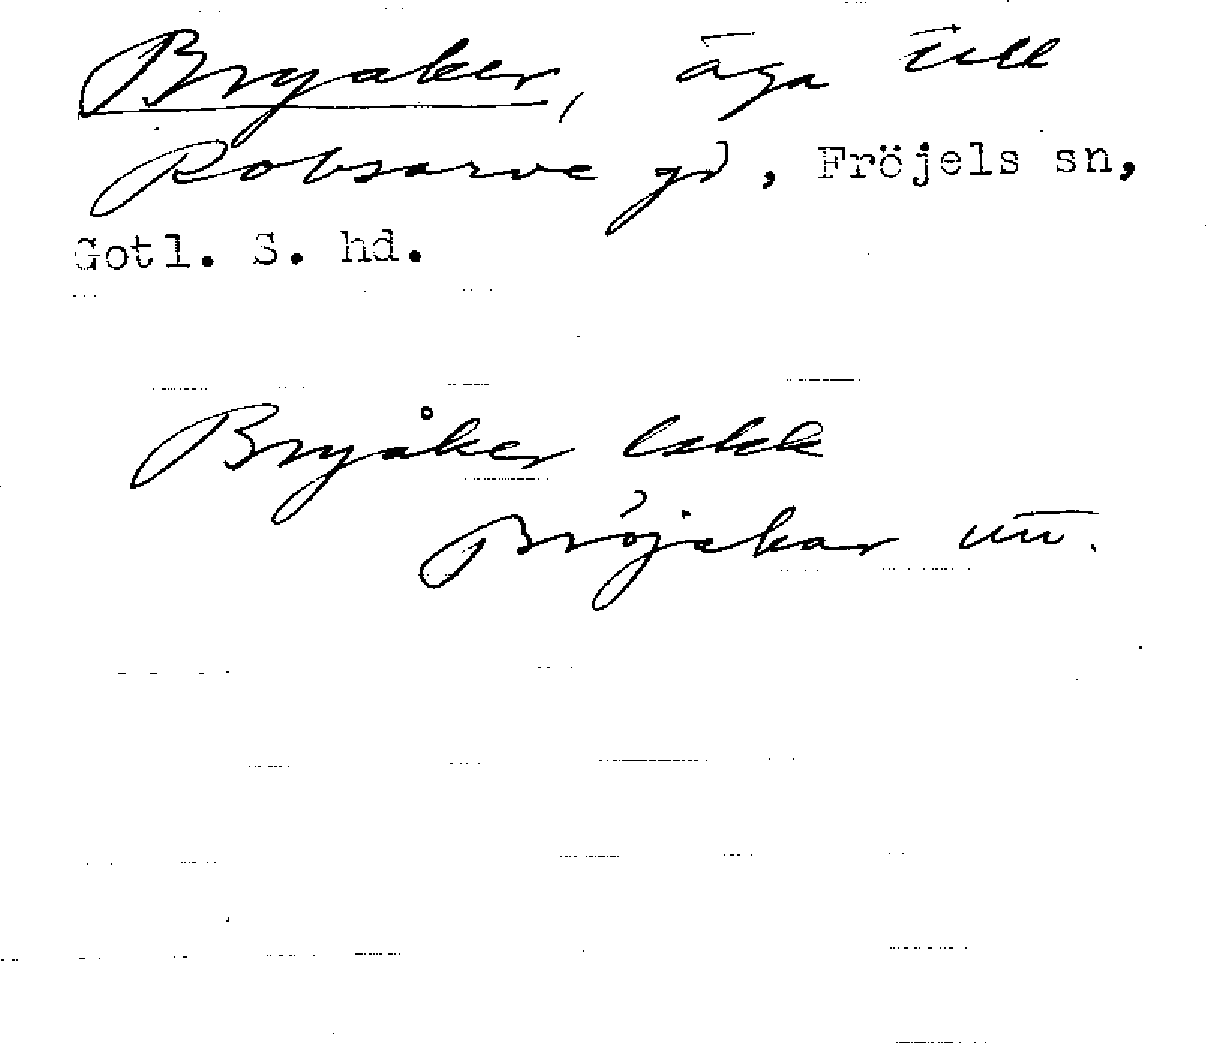 Bryaker, äga till
Robsarve gd, Fröjels sn,
Gotl. S. hd.
Bryåker lskk
Bröjakar uu.